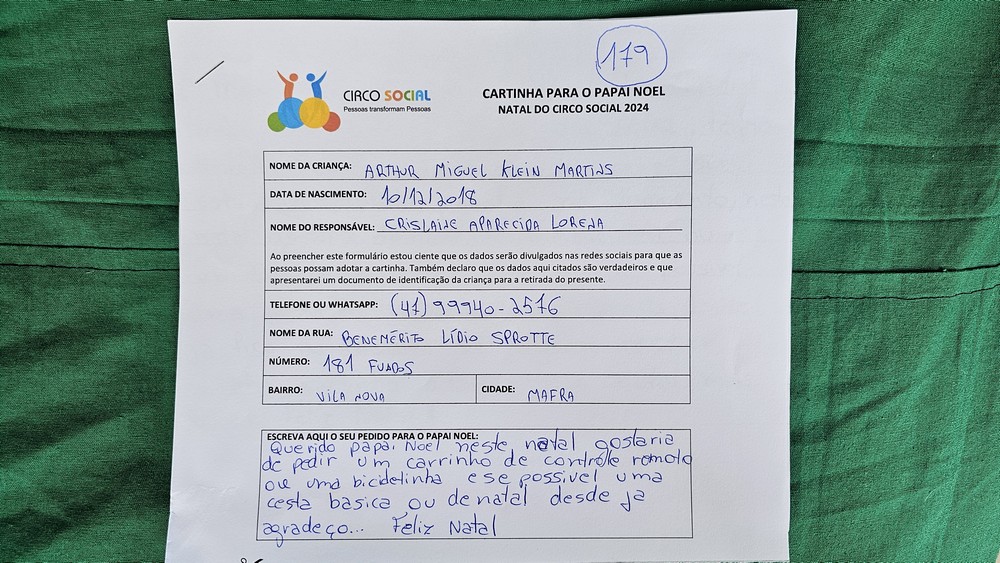 179
CIRCO SOCIAL
Pessoas transformam Pessoas
CARTINHA PARA O PAPAI NOEL
NATAL DO CIRCO SOCIAL 2024
NOME DA CRIANÇA: ARTHUR MIGUEL KLEIN MARTINS
DATA DE NASCIMENTO: 10/12/2018
NOME DO RESPONSÁVEL: CRISLAINE APARECIDA LORENA
Ao preencher este formulário estou ciente que os dados serão divulgados nas redes sociais para que as
pessoas possam adotar a cartinha. Também declaro que os dados aqui citados são verdadeiros e que
apresentarei um documento de identificação da criança para a retirada do presente.
TELEFONE OU WHATSAPP: (47) 99940-2576
NOME DA RUA: BENEMÉRITO LÍDIO SPROTTE
NÚMERO: 181 FUNDOS
BAIRRO: VILA NOVA CIDADE: MAFRA
ESCREVA AQUI O SEU PEDIDO PARA O PAPAI NOEL:
Querido papai Noel neste natal gostaria
de pedir um carrinho de controle remoto
ou uma bicicletinha e se possivel uma
cesta basica ou de natal desde ja
agradeço... Feliz Natal